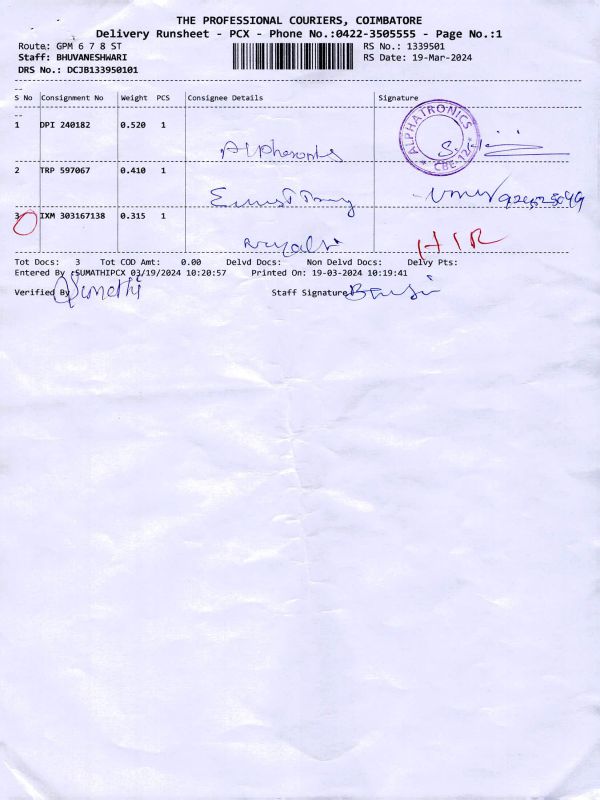 THE PROFESSIONAL COURIERS, COIMBATORE
Delivery Runsheet - PCX - Phone No.:0422-3505555 - Page No.:1
Route: GPM 6 7 8 ST RS No.: 1339501
Staff: BHUVANESHWARI RS Date: 19-Mar-2024
DRS No.: DCJB133950101
S No Consignment No Weight PCS Consignee Details Signature
1 DPI 240182 0.520 1
ALPHATRONICS
CBE-12
2 TRP 597067 0.410 1
3 IXM 303167138 0.315 1
Tot Docs: 3 Tot COD Amt: 0.00 Delvd Docs: Non Delvd Docs: Delvy Pts:
Entered By :SUMATHIPCX 03/19/2024 10:20:57 Printed On: 19-03-2024 10:19:41
Verified By Sumathi Staff Signature